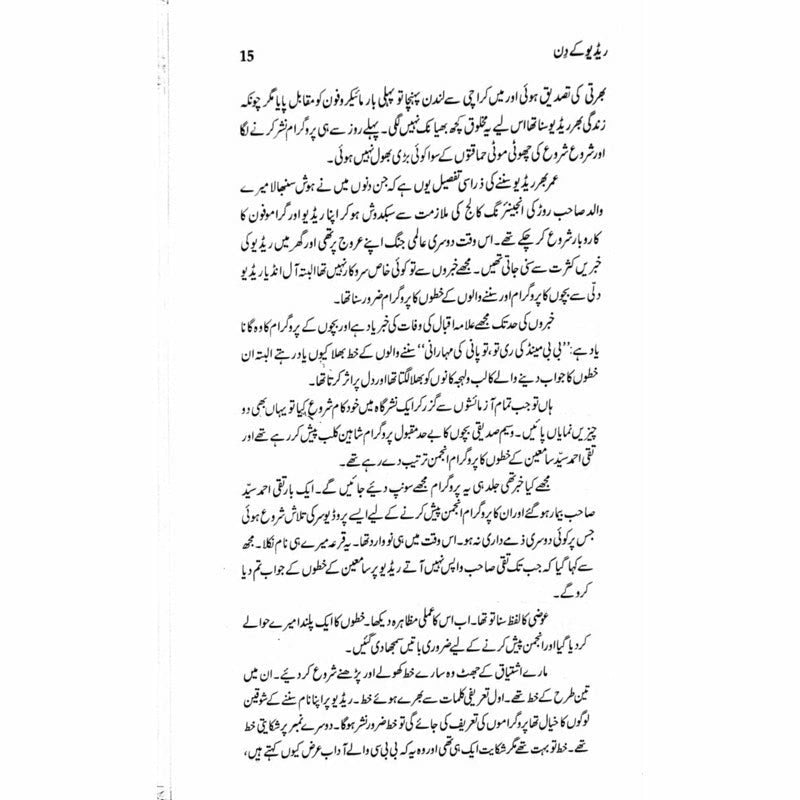 ریڈیو کے دن
15
بھرتی کی تصدیق ہوئی اور میں کراچی سے لندن پہنچا تو پہلی بار مائیکروفون کو مقابل پایا مگر چونکہ
زندگی بھر ریڈیو سنا تھا اس لیے یہ مخلوق کچھ بھیانک نہیں لگی۔ پہلے روز سے ہی پروگرام نشر کرنے لگا
اور شروع شروع کی چھوٹی موٹی حماقتوں کے سوا کوئی بڑی بھول نہیں ہوئی۔
عمر بھر ریڈیو سننے کی ذرا سی تفصیل یوں ہے کہ جن دنوں میں نے ہوش سنبھالا میرے
والد صاحب روڑ کی انجینئرنگ کالج کی ملازمت سے سبکدوش ہو کر اپنا ریڈیو اور گراموفون کا
کاروبار شروع کر چکے تھے۔ اس وقت دوسری عالمی جنگ اپنے عروج پر تھی اور گھر میں ریڈیو کی
خبریں کثرت سے سنی جاتی تھیں۔ مجھے خبروں سے تو کوئی خاص سروکار نہیں تھا البتہ آل انڈیا ریڈیو
دلّی سے بچوں کا پروگرام اور سننے والوں کے خطوں کا پروگرام ضرور سنا تھا۔
خبروں کی حد تک مجھے علامہ اقبال کی وفات کی خبر یاد ہے اور بچوں کے پروگرام کا وہ گانا
یاد ہے: ’’بی بی مینڈکی ری تو، تو پانی کی مہارانی‘‘ سننے والوں کے خط بھلا کیوں یاد رہتے البتہ ان
خطوں کا جواب دینے والے کا لب و لہجہ کانوں کو بھلا لگتا تھا اور دل پر اثر کرتا تھا۔
ہاں تو جب تمام آزمائشوں سے گزر کر ایک نشر گاہ میں خود کام شروع کیا تو یہاں بھی دو
چیزیں نمایاں پائیں۔ وسیم صدیقی بچوں کا بے حد مقبول پروگرام شاہین کلب پیش کر رہے تھے اور
تقی احمد سیّد سامعین کے خطوں کا پروگرام انجمن ترتیب دے رہے تھے۔
مجھے کیا خبر تھی جلد ہی یہ پروگرام مجھے سونپ دیئے جائیں گے۔ ایک بار تقی احمد سیّد
صاحب بیمار ہو گئے اور ان کا پروگرام انجمن پیش کرنے کے لیے ایسے پروڈیوسر کی تلاش شروع ہوئی
جس پر کوئی دوسری ذمے داری نہ ہو۔ اس وقت میں ہی نووارد تھا۔ یہ قرعہ میرے ہی نام نکلا۔ مجھ
سے کہا گیا کہ جب تک تقی صاحب واپس نہیں آتے ریڈیو پر سامعین کے خطوں کے جواب تم دیا
کرو گے۔
عوضی کا لفظ سنا تو تھا۔ اب اس کا عملی مظاہرہ دیکھا۔ خطوں کا ایک پلندا میرے حوالے
کر دیا گیا اور انجمن پیش کرنے کے لیے ضروری باتیں سمجھا دی گئیں۔
مارے اشتیاق کے جھٹ وہ سارے خط کھولے اور پڑھنے شروع کر دیئے۔ ان میں
تین طرح کے خط تھے۔ اول تعریفی کلمات سے بھرے ہوئے خط۔ ریڈیو پر اپنا نام سننے کے شوقین
لوگوں کا خیال تھا پروگراموں کی تعریف کی جائے گی تو خط ضرور نشر ہوگا۔ دوسرے نمبر پر شکایتی خط
تھے۔ خط تو بہت تھے مگر شکایت ایک ہی تھی اور وہ یہ کہ بی بی سی والے آداب عرض کیوں کہتے ہیں،